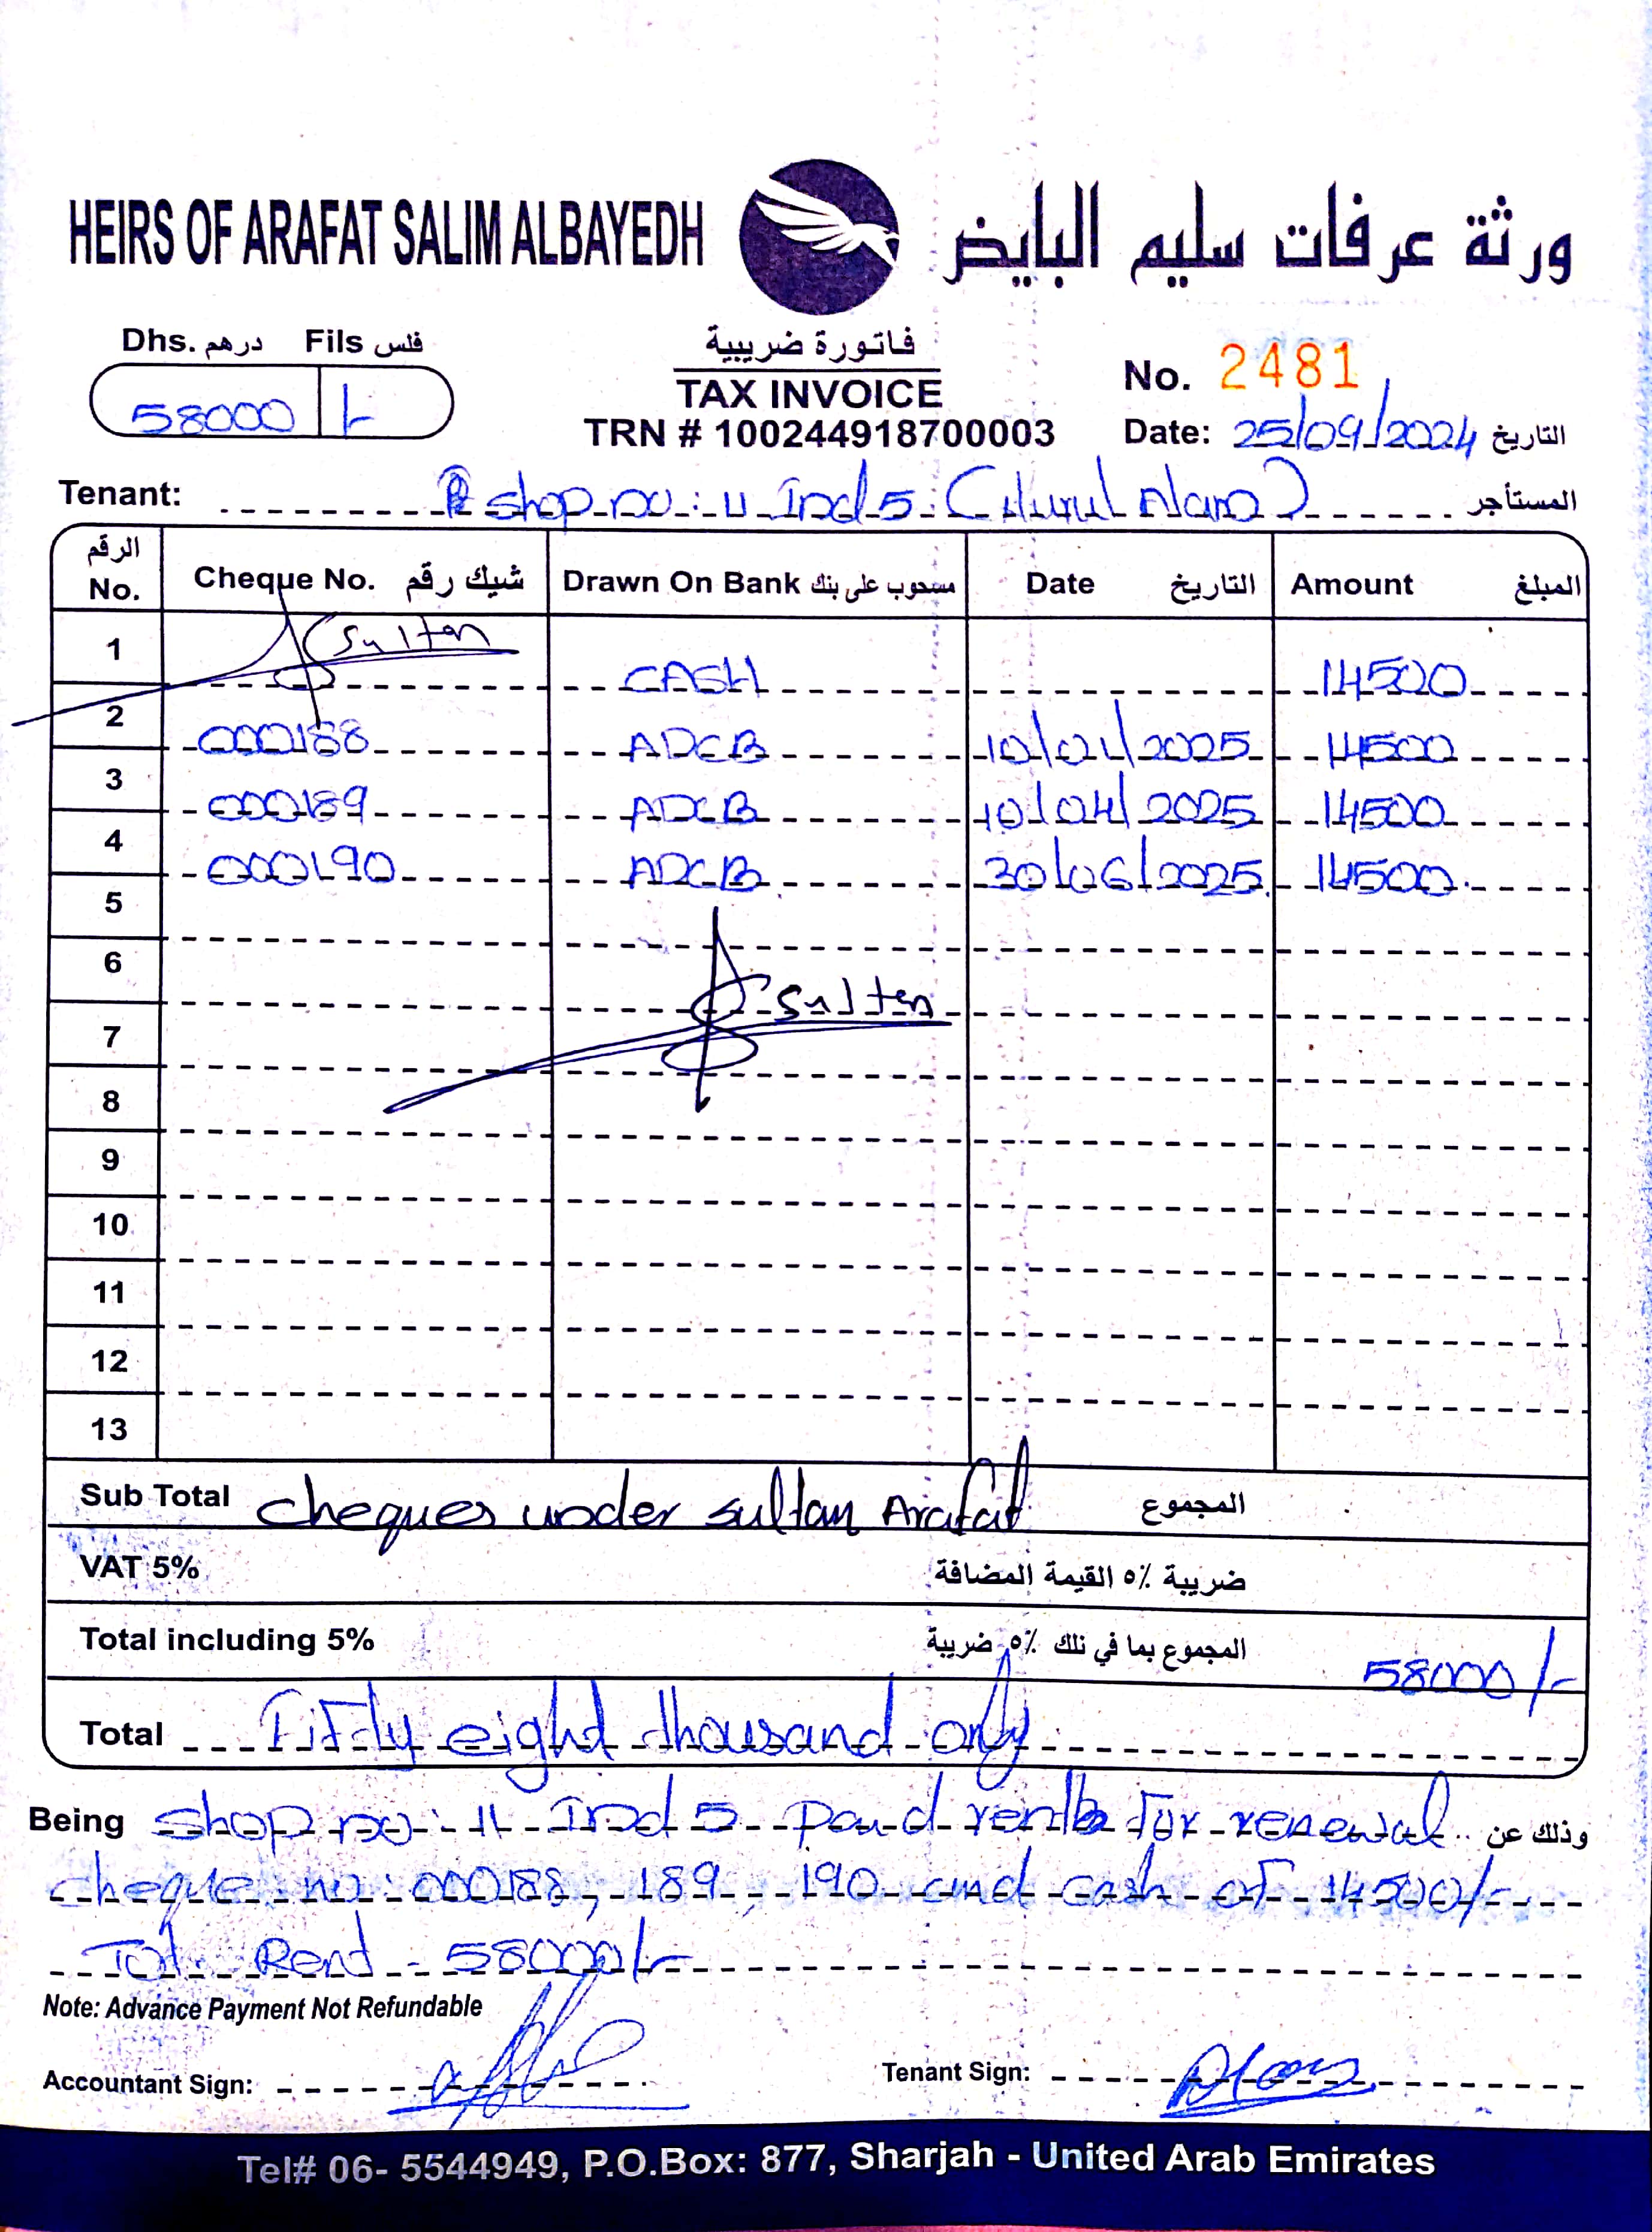 HEIRS OF ARAFAT SALIM ALBAYEDH ورثة عرفات سليم البايض
Dhs. درهم Fils فلس
58000 /-
فاتورة ضريبية
TAX INVOICE
TRN # 100244918700003
No. 2481
Date: 25/09/2024 التاريخ
Tenant: shop no: 11 Ind 5 (Nurul Alam) المستأجر
الرقم No. Cheque No. شيك رقم Drawn On Bank مسحوب على بنك Date التاريخ Amount المبلغ
1 Sultan CASH 14500
2 000188 ADCB 10/01/2025 14500
3 000189 ADCB 10/04/2025 14500
4 000190 ADCB 30/06/2025 14500
5
6 Sultan
7
8
9
10
11
12
13
Sub Total cheques under sultan Arafat المجموع
VAT 5% ضريبة ٥% القيمة المضافة
Total including 5% المجموع بما في ذلك ٥% ضريبة 58000/-
Total Fifty eight thousand only
Being shop no: 11 Ind 5 paid rent for renewal وذلك عن
cheque no: 000188, 189, 190 and cash of 14500/-
Tot. Rent - 58000/-
Note: Advance Payment Not Refundable
Accountant Sign: Tenant Sign: Alam
Tel# 06- 5544949, P.O.Box: 877, Sharjah - United Arab Emirates